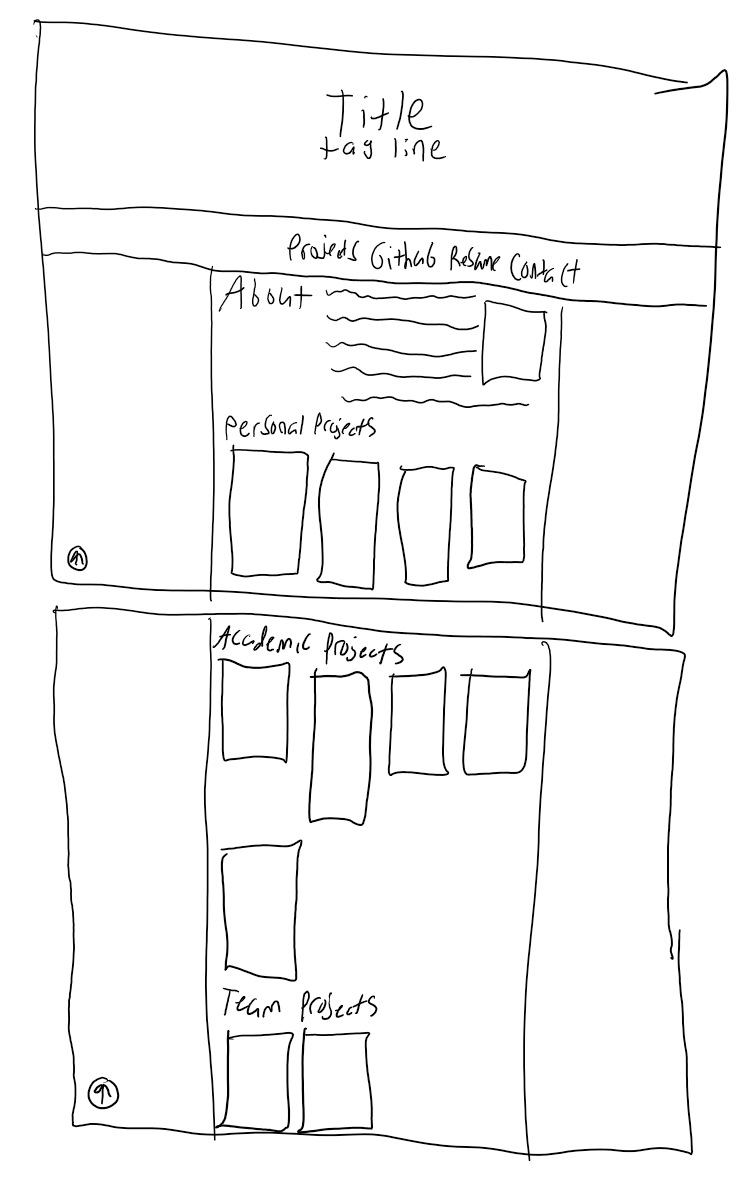 Title
tag line
Projects Github Resume Contact
About
Personal Projects
Academic Projects
Team Projects